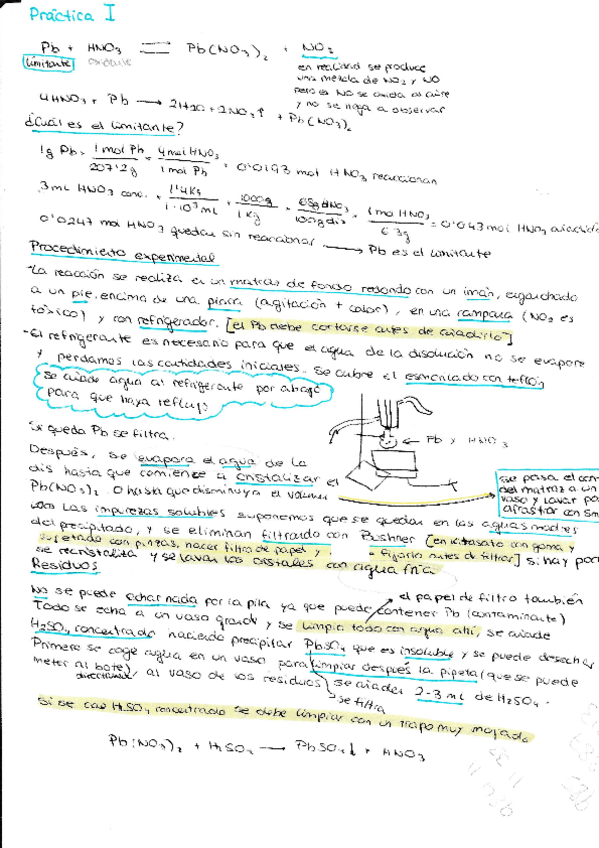 Práctica I
Pb + HNO₃ ⇌ Pb(NO₃)₂ + NO₂
limitante oxidante
en realidad se produce
una mezcla de NO₂ y NO
pero el NO se oxida al aire
y no se llega a observar
4HNO₃ + Pb → 2H₂O + 2NO₂↑ + Pb(NO₃)₂
¿Cuál es el limitante?
1g Pb · 1 mol Pb / 207'2g · 4 mol HNO₃ / 1 mol Pb = 0'0193 mol HNO₃ reaccionan
3mL HNO₃ conc. · 1'4Kg / 1·10³ mL · 1000g / 1Kg · 65g HNO₃ / 100g dis · 1 mol HNO₃ / 63g = 0'043 mol HNO₃ añadidos
0'0247 mol HNO₃ quedan sin reaccionar → Pb es el limitante
Procedimiento experimental
-La reacción se realiza en un matraz de fondo redondo con un imán, enganchado
a un pie, encima de una (agitación + calor), en una campana (NO₂ es
tóxico) y con refrigerador. [el Pb debe cortarse antes de añadirlo]
-El refrigerante es necesario para que el agua de la disolución no se evapore
y perdamos las cantidades iniciales. Se cubre el esmerilado con teflón
Se añade agua al refrigerante por abajo
para que haya reflujo
Si queda Pb se filtra.
← Pb y HNO₃
Después, se evapora el agua de la
dis hasta que comience a cristalizar el
Pb(NO₃)₂. O hasta que disminuya el volumen
se pasa el con
del matraz a un
vaso y lavar pa
arrastrar con 5m
Las impurezas solubles suponemos que se quedan en las aguas madres
del precipitado, y se eliminan filtrando con Bushner [en kitasato con goma y
sujetado con pinzas, hacer filtro de papel y fijarlo antes de filtrar] si hay por
se recristaliza y se lavan los cristales con agua fría
Residuos
el papel de filtro también
No se puede echar nada por la pila ya que puede contener Pb (contaminante)
Todo se echa a un vaso grande y se limpia todo con agua allí, se añade
H₂SO₄ concentrado haciendo precipitar PbSO₄ que es insoluble y se puede desechar
Primero se coge agua en un vaso para limpiar después la pipeta (que se puede
meter al bote) directamente al vaso de los residuos se añaden 2-3 mL de H₂SO₄.
se filtra
Si se cae H₂SO₄ concentrado se debe limpiar con un trapo muy mojado
Pb(NO₃)₂ + H₂SO₄ → PbSO₄↓ + HNO₃